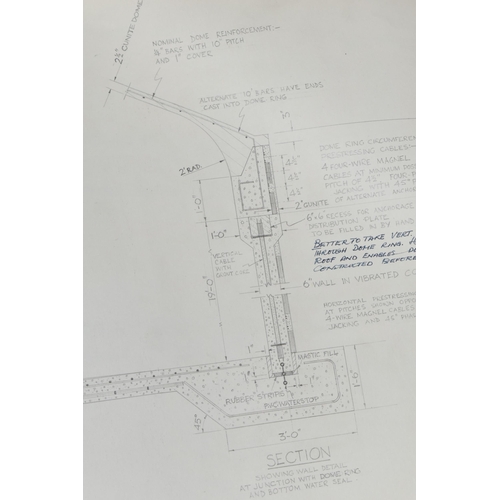 2½" GUNITE DOME
NOMINAL DOME REINFORCEMENT:-
BARS WITH 10" PITCH
AND 1" COVER
ALTERNATE 10" BARS HAVE ENDS
CAST INTO DOME RING
DOME RING CIRCUMFEREN
PRESTRESSING CABLES:-
4 FOUR-WIRE MAGNEL
CABLES AT MINIMUM
PITCH OF 4½" FOUR-
JACKING WITH 45°
OF ALTERNATE
2'RAD
4½"
4½"
4½"
2" GUNITE
1'-0"
1'-0"
6"×6" RECESS FOR ANCHORAGE
DISTRIBUTION PLATE
TO BE FILLED IN BY HAND
BETTER TO TAKE VERT.
THROUGH DOME RING.
ROOF AND ENABLES
CONSTRUCTED BEFORE
VERTICAL
CABLE
WITH
19'-0"
6" WALL IN VIBRATED CO
HORIZONTAL PRESTRESSING
AT PITCHES
4-WIRE MAGNEL CABLES
JACKING AND 45°
1"
MASTIC FILL
1"
1"
1'-0"
RUBBER STRIPS
P.V.C. WATERSTOP
45°
3'-0"
SECTION
SHOWING WALL DETAIL
AT JUNCTION WITH DOME RING
AND BOTTOM WATER SEAL